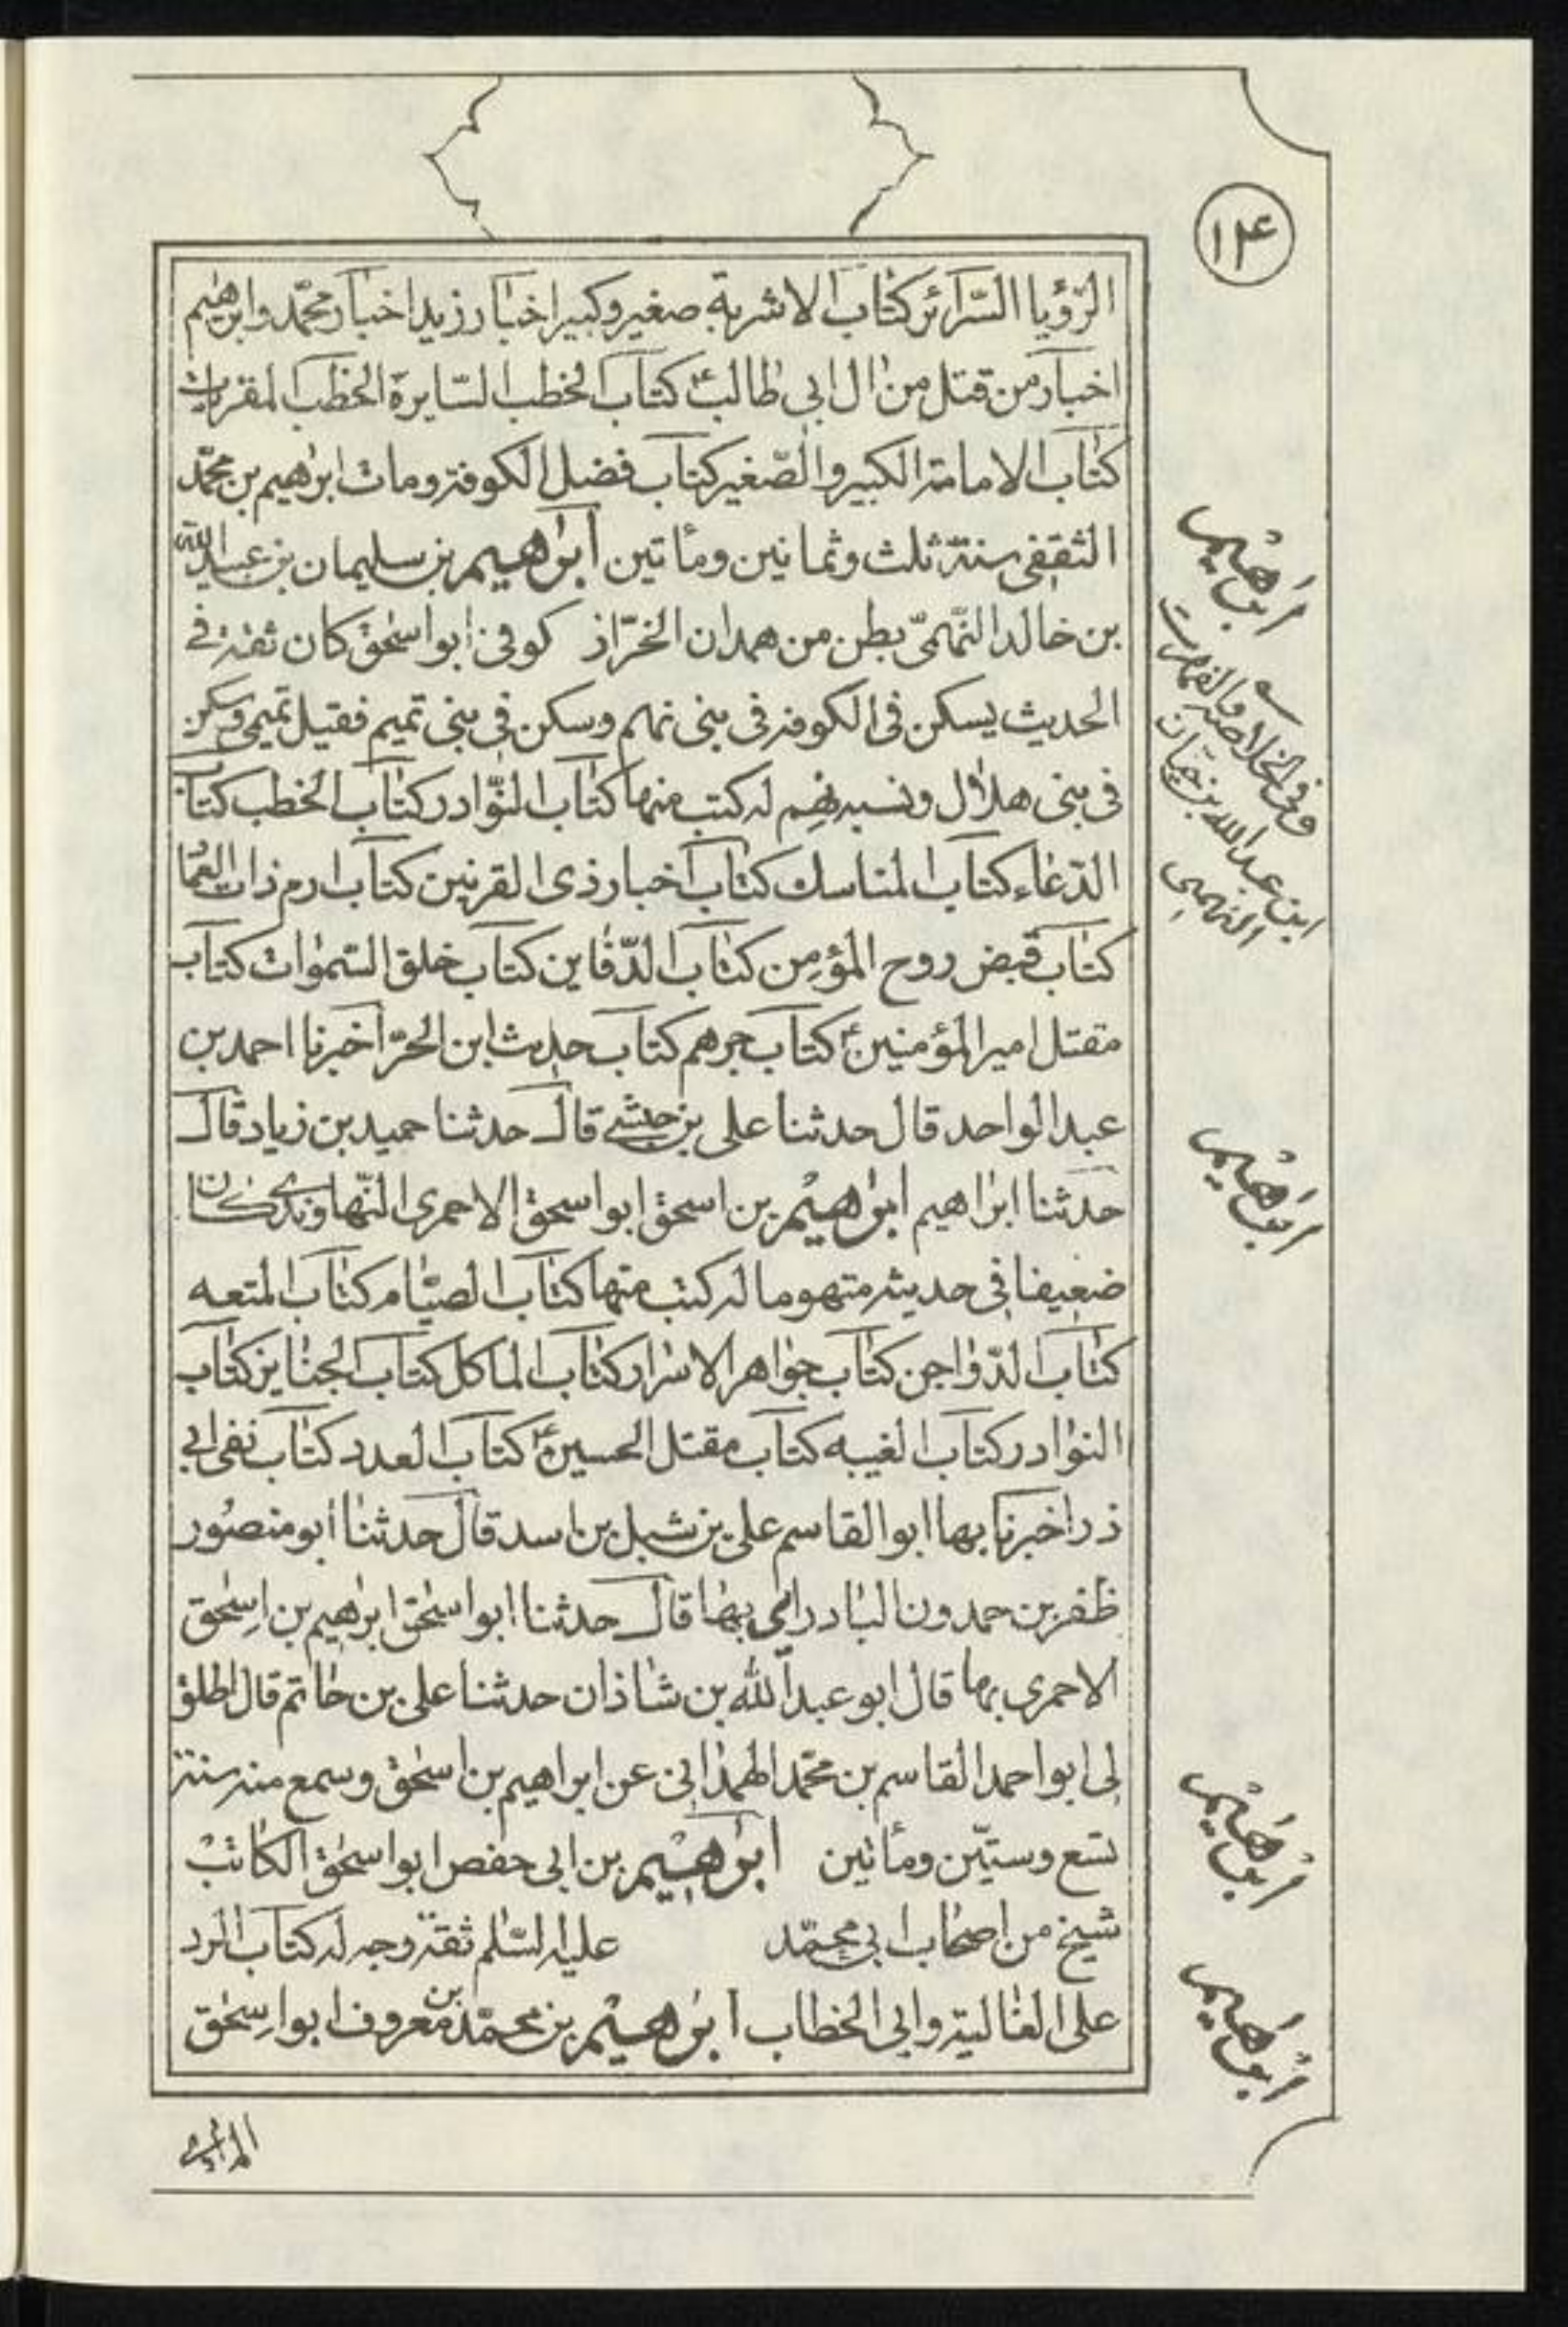 ۱۴
الرّؤيا السّرائر كتاب الاشربة صغير وكبير اخبار زيد اخبار محمّد وابرهيم
اخبار من قتل من ال ابي طالب ع كتاب الخطب السّايرة الخطب المقريات
كتاب الامامة الكبير والصّغير كتاب فضل الكوفة ومات ابرهيم بن محمّد
الثقفي سنة ثلث وثمانين ومأتين ابرهيم بن سليمان بن عبدالله
بن خالد النّهمىّ بطن من همدان الخزّاز كوفى ابواسحق كان ثقة في
الحديث يسكن فى الكوفة فى بنى نهم وسكن فى بنى تميم فقيل تميمى وسكن
فى بنى هلال ونسبه نهم له كتب منها كتاب النّوادر كتاب الخطب كتاب
الدّعاء كتاب المناسك كتاب اخبار ذى القرنين كتاب ارم ذات العماد
كتاب قبض روح المؤمن كتاب الدّفاين كتاب خلق السّموات كتاب
مقتل امير المؤمنين ع كتاب جرهم كتاب حديث ابن الحرّ اخبرنا احمد بن
عبدالواحد قال حدثنا على بن حبشى قال حدثنا حميد بن زياد قال
حدثنا ابراهيم ابرهيم بن اسحق ابواسحق الاحمرى النّهاوندى كان
ضعيفا فى حديثه متهوما له كتب منها كتاب الصيّام كتاب المتعه
كتاب الدّواجن كتاب جواهر الاسرار كتاب الماكل كتاب الجنايز كتاب
النوادر كتاب الغيبه كتاب مقتل الحسين ع كتاب العدد كتاب نفى ابى
ذر اخبرنا بها ابوالقاسم على بن شبل بن اسد قال حدثنا ابومنصور
ظفر بن حمدون البادرائى بها قال حدثنا ابواسحق ابرهيم بن اسحق
الاحمرى بها قال ابوعبدالله بن شاذان حدثنا على بن حاتم قال اطلق
لى ابواحمد القاسم بن محمّد الهمذانى عن ابراهيم بن اسحق وسمع منه سنة
تسع وستّين ومأتين ابرهيم بن ابى حفص ابواسحق الكاتب
شيخ من اصحاب ابى محمّد عليه السّلم ثقة وجه له كتاب الرد
على الغالية وابى الخطاب ابرهيم بن محمّد بن معروف ابواسحق
المذارى
ابرهيم
وفى الخلاصة والفهرست
ابن عبدالله بن حيان
النهمى
ابرهيم
ابرهيم
ابرهيم